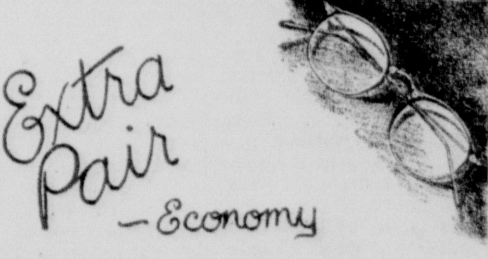 Extra
Pair
— Economy